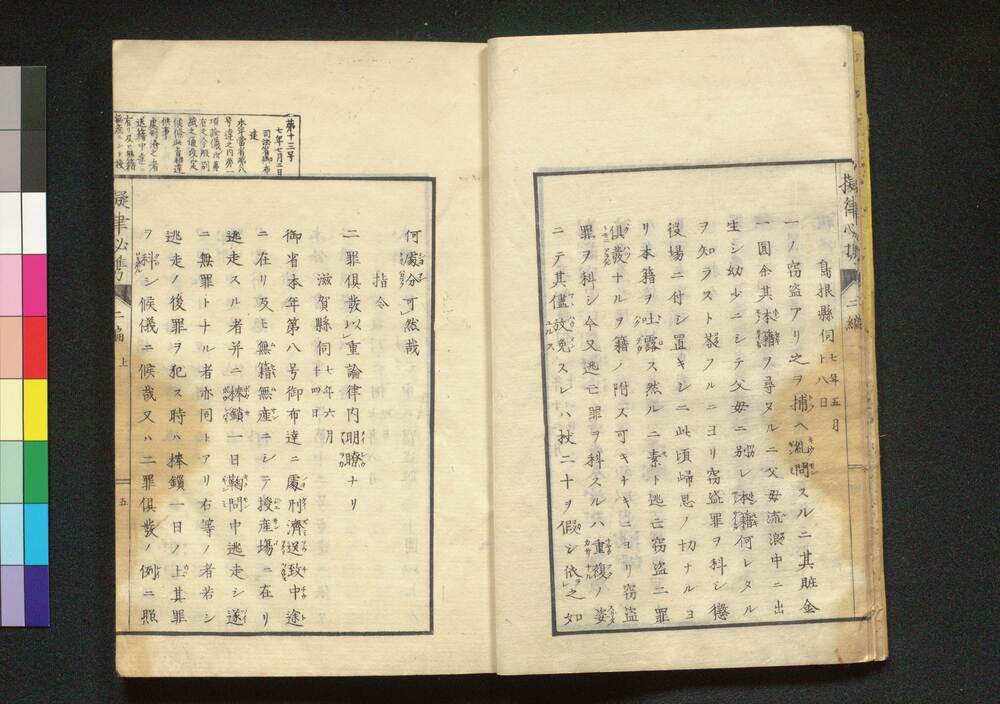 擬律必携 二編
島根縣伺 七年五月十八日
一ノ窃盗アリ之ヲ捕ヘ糺問スルニ其賍金
一圓余其本籍ヲ尋ヌルニ父母流浪中ニ出
生シ幼少ニシテ父母ニ別レ本籍何レタル
ヲ知ラスト拠フルニヨリ窃盗罪ヲ科シ懲
役場ニ付シ置キシニ此頃歸思ノ切ナルヨ
リ本籍ヲ吐露ス然ルニ素ト逃亡窃盗二罪
俱發ナルヲ籍ノ附ス可キナキニヨリ窃盗
罪ヲ科シ今又逃亡罪ヲ科スルハ重複ノ姿
ニテ其儘放免スレハ杖二十ヲ假シ依之如
何處分可然哉
指令
二罪俱發以重論律内明瞭ナリ
滋賀縣伺 七年六月十四日
御省本年第八号御布達ニ處刑濟逓致中途
ニ在リ及ヒ無籍無産ニシテ授産塲ニ在リ
逃走スル者并ニ棒鎖一日鞠問中逃走シ遂
ニ無罪トナル者亦同トアリ右等ノ者若シ
逃走ノ後罪ヲ犯ス時ハ捧鎖一日ノ上其罪
ヲ科シ候儀ニ候哉又ハ二罪俱發ノ例ニ照
第十三号
七年七月二日
司法省御布
達
本年當省第八
号達之内第一
項諭儀次第
有之今般別
紙之通改定
候條此旨相達
候事
處刑濟之者
送籍中途ニ
有リ及ヒ無籍
無産ニシテ授
擬律必携 二編 上
五